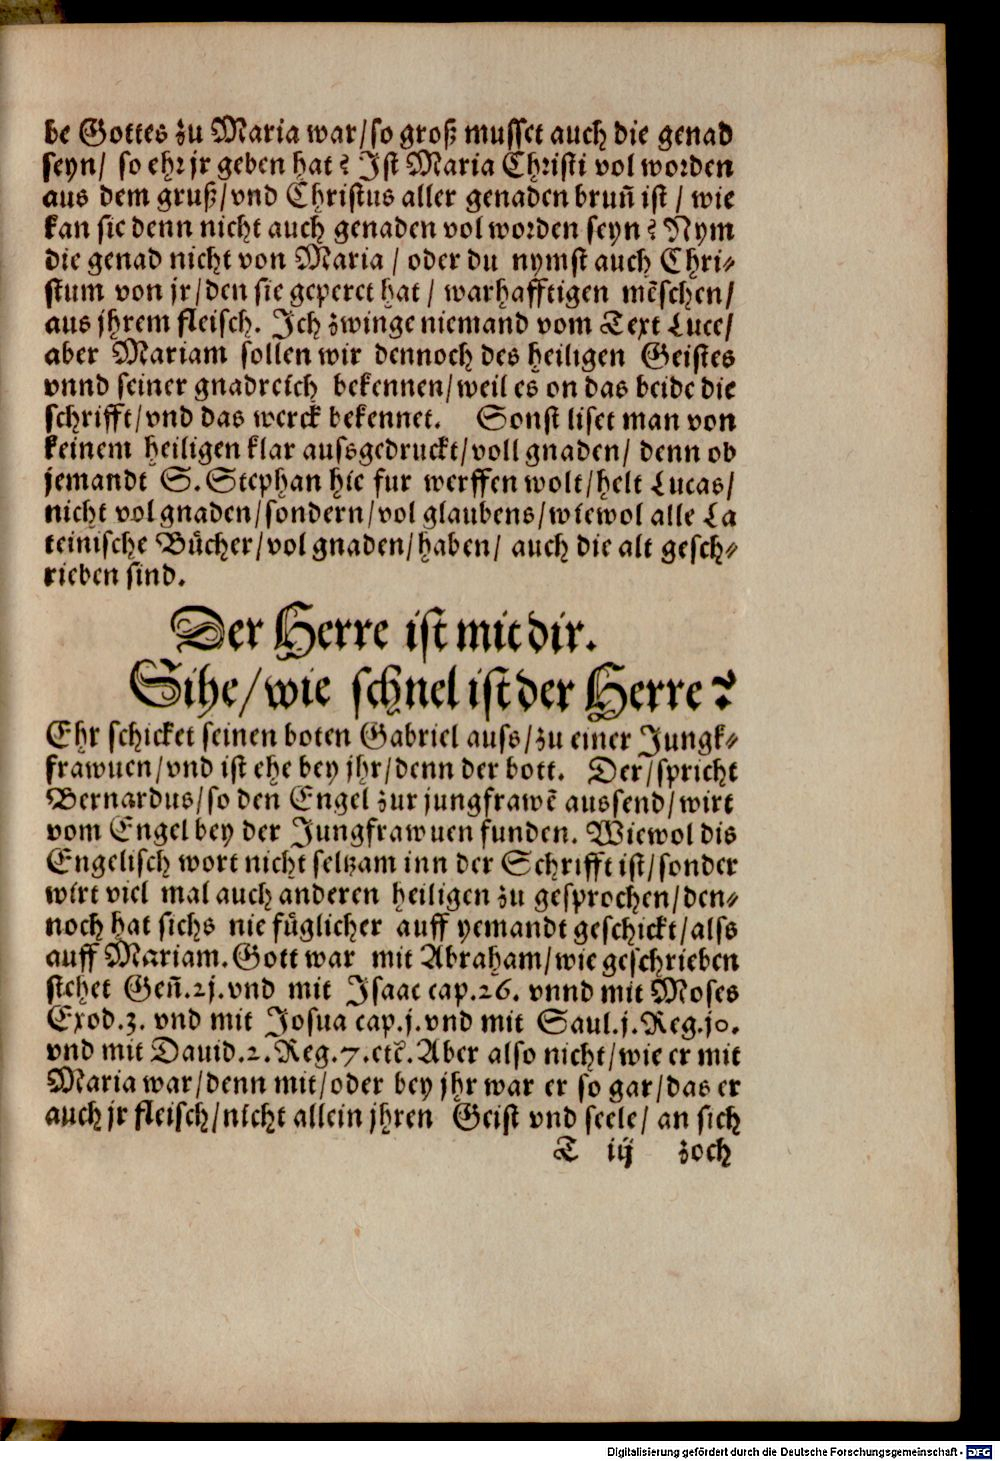 be Gottes zu Maria war/so groß musset auch die genad
seyn/ so ehr jr geben hat? Ist Maria Christi vol worden
aus dem gruß/vnd Christus aller genaden brun̄ ist / wie
kan sie denn nicht auch genaden vol worden seyn? Nym
die genad nicht von Maria / oder du nymst auch Chri-
stum von jr/den sie geperet hat / warhafftigen mēschen/
aus jhrem fleisch. Ich zwinge niemand vom Text Luce/
aber Mariam sollen wir dennoch des heiligen Geistes
vnnd seiner gnadreich bekennen/weil es on das beide die
schrifft/vnd das werck bekennet. Sonst liset man von
keinem heiligen klar aussgedruckt/voll gnaden/ denn ob
jemandt S. Stephan hie fur werffen wolt/helt Lucas/
nicht vol gnaden/sondern/vol glaubens/wiewol alle La
teinische Bücher/vol gnaden/haben/ auch die alt gesch-
rieben sind.
Der Herre ist mit dir.
Sihe/wie schnel ist der Herre?
Ehr schicket seinen boten Gabriel auss/zu einer Jungk-
frawuen/vnd ist ehe bey jhr/denn der bott. Der/spricht
Bernardus/so den Engel zur jungfrawē aussend/wirt
vom Engel bey der Jungfrawuen funden. Wiewol dis
Engelisch wort nicht seltzam inn der Schrifft ist/sonder
wirt viel mal auch anderen heiligen zu gesprochen/den-
noch hat sichs nie füglicher auff yemandt geschickt/alss
auff Mariam. Gott war mit Abraham/wie geschrieben
stehet Gen̄.2j.vnd mit Isaac cap.26. vnnd mit Moses
Exod.3. vnd mit Josua cap.j.vnd mit Saul.j.Reg.jo.
vnd mit Dauid.2.Reg.7.etc̄. Aber also nicht/wie er mit
Maria war/denn mit/oder bey jhr war er so gar/das er
auch jr fleisch/nicht allein jhren Geist vnd seele/ an sich
T iij zoch
Digitalisierung gefördert durch die Deutsche Forschungsgemeinschaft - DFG